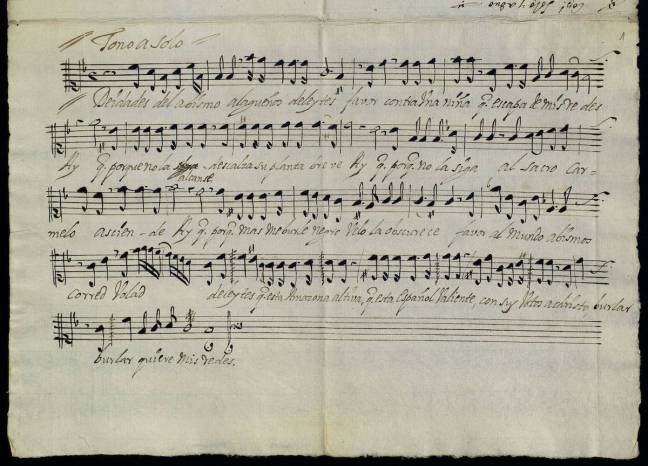 Tono a solo
Deidades del abismo alagueños deleytes favor contra Vna niña q. escapa de mis redes
Ay q. porque no la descalza su planta breve Ay q. porq. no la siga al sacro Car-
alcanse
melo ascien-de Ay q. porq. mas me burle negro Velo la obscurece favor al Mundo abismos
corred Volad deleytes q. esta Amazona altiva, q. esta Español Valiente, con su Voto acaristo, burlar
burlar quiere mis redes.